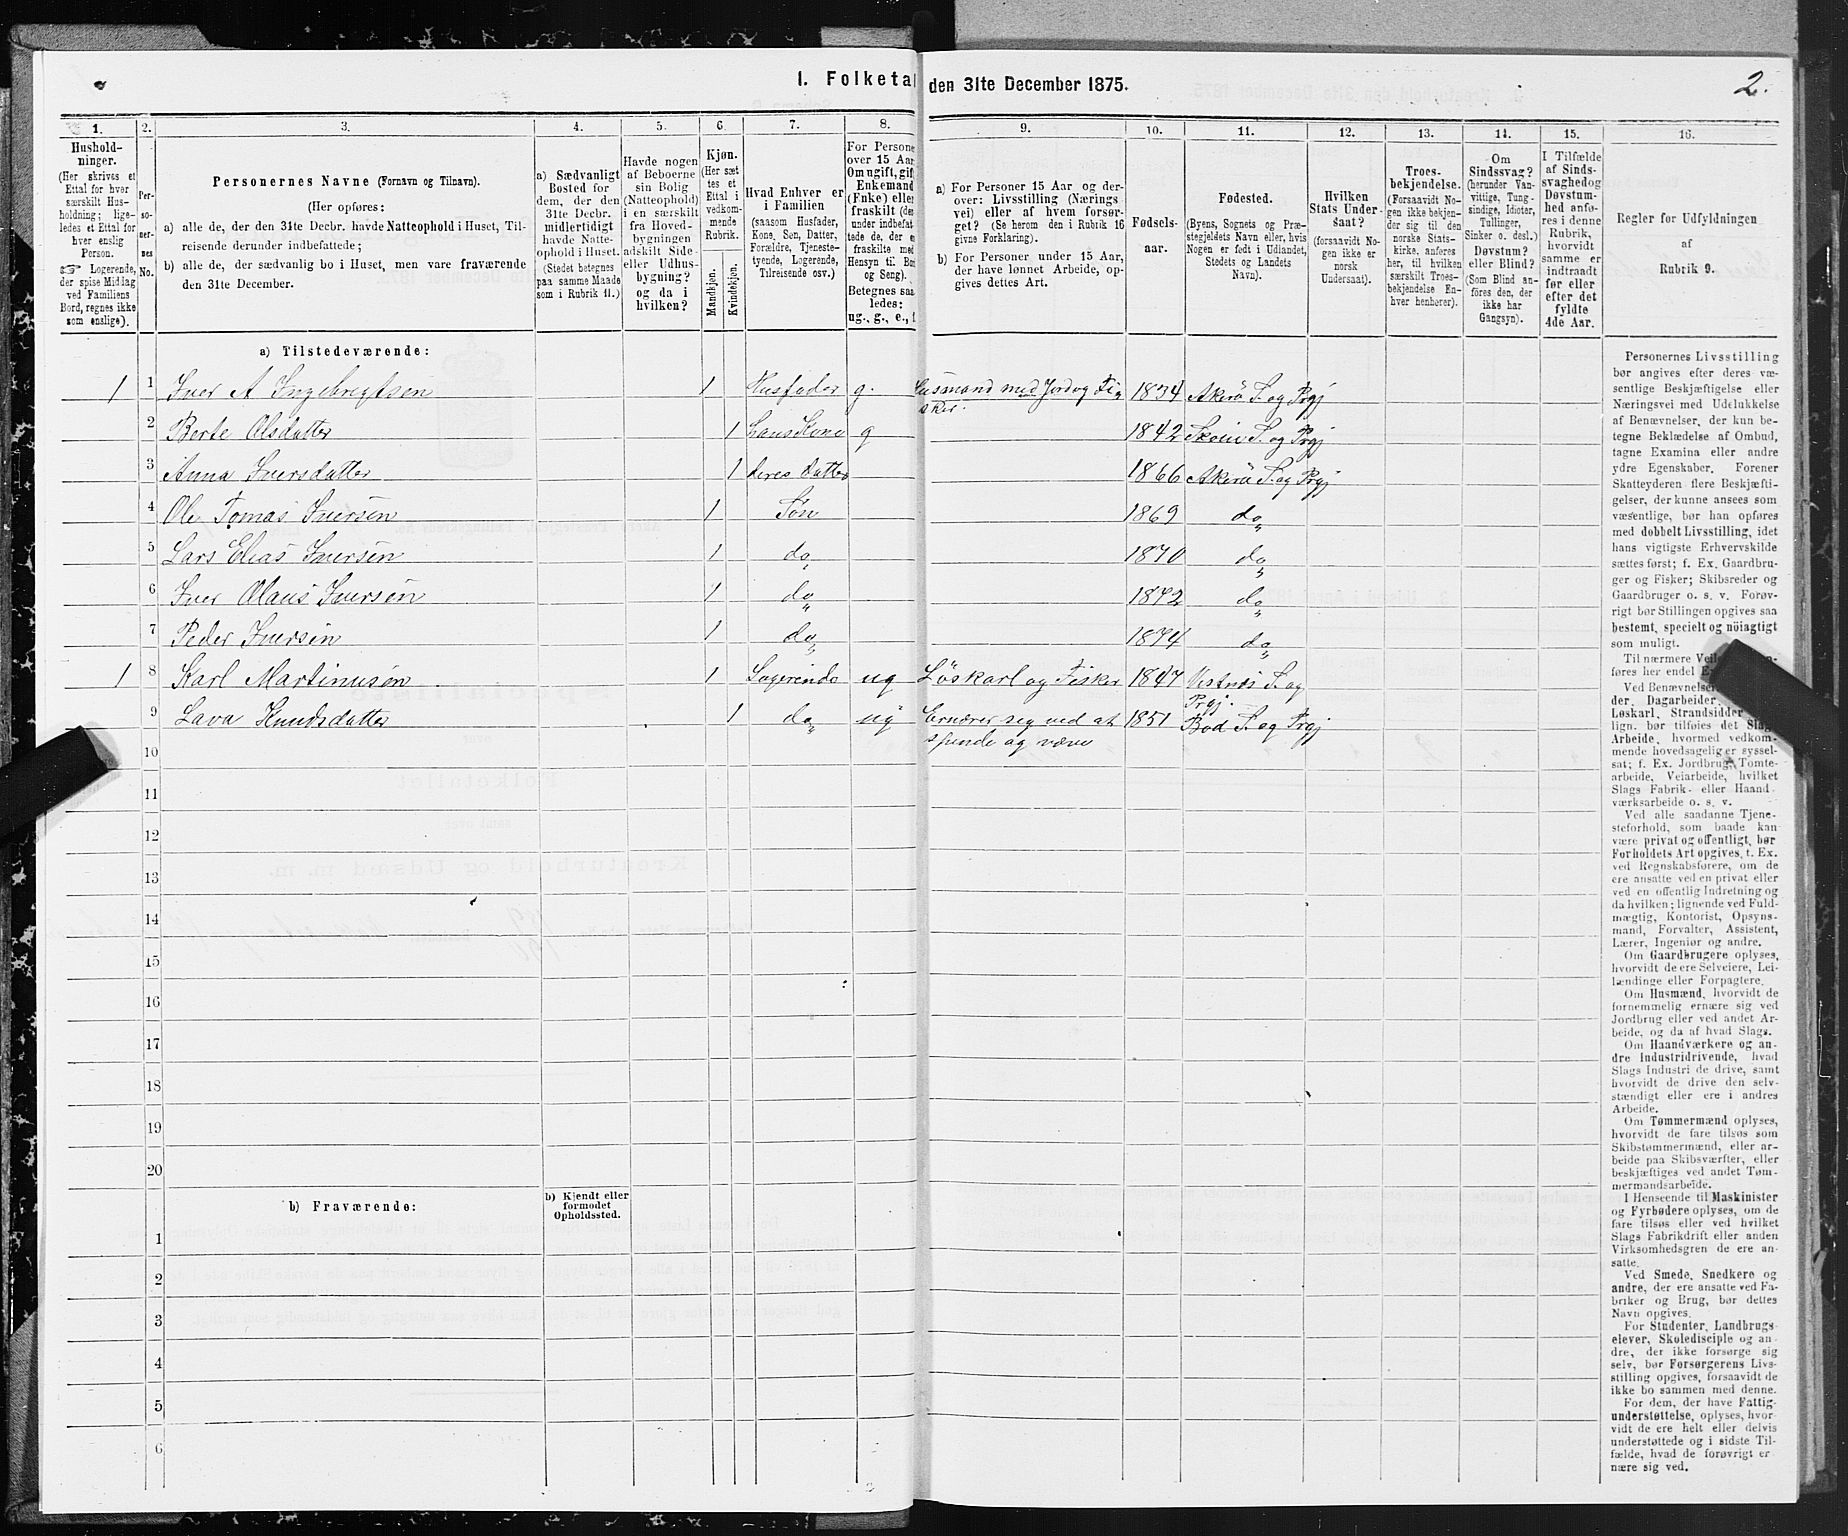 1. Folketal den 31te December 1875.
2.
1. 2. 3. 4. 5. 6. 7. 8. 9. 10. 11. 12. 13. 14. 15. 16.
Hushold-
ninger.
(Her skrives et
Ettal for hver
særskilt Hus-
holdning; lige-
ledes et Ettal for
hver enslig
Person.
☞ Logerende,
der spise Middag
ved Familiens
Bord, regnes ikke
som enslige).
Per-
so-
ner-
nes
No.
Personernes Navne (Fornavn og Tilnavn).
(Her opføres:
a) alle de, der den 31te Decbr. havde Natteophold i Huset, Til-
reisende derunder indbefattede;
b) alle de, der sædvanlig bo i Huset, men vare fraværende
den 31te December.
a) Sædvanligt
Bosted for
dem, der den
31te Decbr.
midlertidigt
havde Natte-
ophold i Huset.
(Stedet betegnes
paa samme Maade
som i Rubrik 11.)
Havde nogen
af Beboerne
sin Bolig
(Natteophold)
i en særskilt
fra Hoved-
bygningen
adskilt Side-
eller Udhus-
bygning?
og da i
hvilken?
Kjøn.
(Her sæt-
tes et
Ettal i
vedkom-
mende
Rubrik.
Mandkjøn.
Kvindekjøn.
Hvad Enhver er
i Familien
(saasom Husfader,
Kone, Søn, Datter,
Forældre, Tjeneste-
tyende, Logerende,
Tilreisende osv.)
For Persone
over 15 Aar
Om ugift, gift
Enkemand
(Enke) eller
fraskilt (de
under indbefat
tede de, der e
fraskilte med
Hensyn til Bo
og Seng).
Betegnes saa
ledes:
ug., g., e., f
a) For Personer 15 Aar og der-
over: Livsstilling (Nærings
vei) eller af hvem forsør-
get? (Se herom den i Rubrik 16
givne Forklaring).
b) For Personer under 15 Aar,
der have lønnet Arbeide, op-
gives dettes Art.
Fødsels-
aar.
Fødested.
(Byens, Sognets og Præ-
stegjeldets Navn eller, hvis
Nogen er født i Udlandet,
Stedets og Landets
Navn).
Hvilken
Stats Under-
saat?
(forsaavidt No-
gen ikke er
norsk
Undersaat).
Troes-
bekjendelse.
(Forsaavidt No-
gen ikke bekjen-
der sig til den
norske Stats-
kirke, anføres
her, til hvilken
særskilt Troes-
bekjendelse En-
hver henhører).
Om
Sindssvag?
(herunder Van-
vittige, Tung-
sindige, Idioter,
Tullinger,
Sinker o. desl.)
Døvstum?
eller Blind?
(Som Blind an-
føres den, der
ikke har
Gangsyn).
I Tilfælde
af Sinds-
svaghed og
Døvstum-
hed anfø-
res i denne
Rubrik,
hvorvidt
samme er
indtraadt
før eller
efter det
fyldte
4de Aar.
Regler for Udfyldningen
af
Rubrik 9.
a) Tilstedeværende:
1 1 Iver A Ingebrigtsen 1 Husfader g. Husmand med Jord og Fi- 1834 Akerø S. og Prgj
sker.
2 Berte Olsdatter 1 hans Kone g 1842 S. og Prgj
3 Anna Iversdatter 1 deres datter 1866 Akerø S. og Prgj
4 Ole Tomas Iversen 1 Søn 1869 do
5 Lars Elias Iversen 1 do 1870 do
6 Iver Olaus Iversen 1 do 1872 do
7 Peder Iversen 1 do 1874 do
1 8 Karl Martinusøn 1 Logerende ug Løskarl og Fisker 1847 Vestnes S. og
Prgj.
9 Lava Knudsdatter 1 do ug Ernærer sig ved at 1851 Bod S. og Prgj
spinde og væve
10
11
12
13
14
15
16
17
18
19
20
b) Fraværende:
b) Kjendt eller
formodet
Opholdssted.
1
2
3
4
5
6
Personernes Livsstilling
bør angives efter deres væ-
sentlige Beskjæftigelse eller
Næringsvei med Udelukkelse
af Benævnelser, der kun be-
tegne Beklædelse af Ombud,
tagne Examina eller andre
ydre Egenskaber. Forener
Skatteyderen flere Beskjæfti-
gelser, der kunne ansees som
væsentlige, bør han opføres
med dobbelt Livsstilling, idet
hans vigtigste Erhvervskilde
sættes først; f. Ex. Gaardbru-
ger og Fisker; Skibsreder og
Gaardbruger o. s. v. Forøv-
rigt bør Stillingen opgives saa
bestemt, specielt og nøiagtigt
som muligt.
Til nærmere
føres her endel
Ved Benævnelser
der, Dagarbeider,
Løskarl, Strandsidder
lign. bør tilføies det Slags
Arbeide, hvormed vedkom-
mende hovedsagelig er syssel-
sat; f. Ex. Jordbrug, Tomte-
arbeide, Veiarbeide, hvilket
Slags Fabrik- eller Haand
værksarbeide o. s. v.
Ved alle saadanne Tjene-
steforhold, som baade kan
være privat og offentligt, bør
Forholdets Art opgives, t. Ex.
ved Regnskabsførere, om de
ere ansatte ved en privat eller
ved en offentlig Indretning og
da hvilken; lignende ved Fuld-
mægtig, Kontorist, Opsyns-
mand, Forvalter, Assistent,
Lærer, Ingeniør og andre.
Om Gaardbrugere oplyses,
hvorvidt de ere Selveiere, Lei-
lændinge eller Forpagtere.
Om Husmænd, hvorvidt de
fornemmelig ernære sig ved
Jordbrug eller ved andet Ar-
beide, og da af hvad Slags.
Om Haandværkere og an-
dre Industridrivende, hvad
Slags Industri de drive, samt
hvorvidt de drive den selv-
stændigt eller ere i andres
Arbeide.
Om Tømmermænd oplyses,
hvorvidt de fare tilsøs som
Skibstømmermænd, eller ar-
beide paa Skibsværfter, eller
beskjæftiges ved andet Tøm-
mermandsarbeide.
I Henseende til Maskinister
og Fyrbødere oplyses, om de
fare tilsøs eller ved hvilket
Slags Fabrikdrift eller anden
Virksomhedsgren de ere an-
satte.
Ved Smede, Snedkere og
andre, der ere ansatte ved Fa-
briker og Brug, bør dettes
Navn opgives.
For Studenter, Landbrugs-
elever, Skoledisciple og an-
dre, der ikke forsørge sig
selv, bør Forsørgerens Livs-
stilling opgives, forsaavidt de
ikke bo sammen med denne.
For dem, der have Fattig-
understøttelse, oplyses, hvor-
vidt de ere helt eller delvis
understøttede og i sidste Til-
fælde, hvad de forøvrigt er-
nære sig ved.